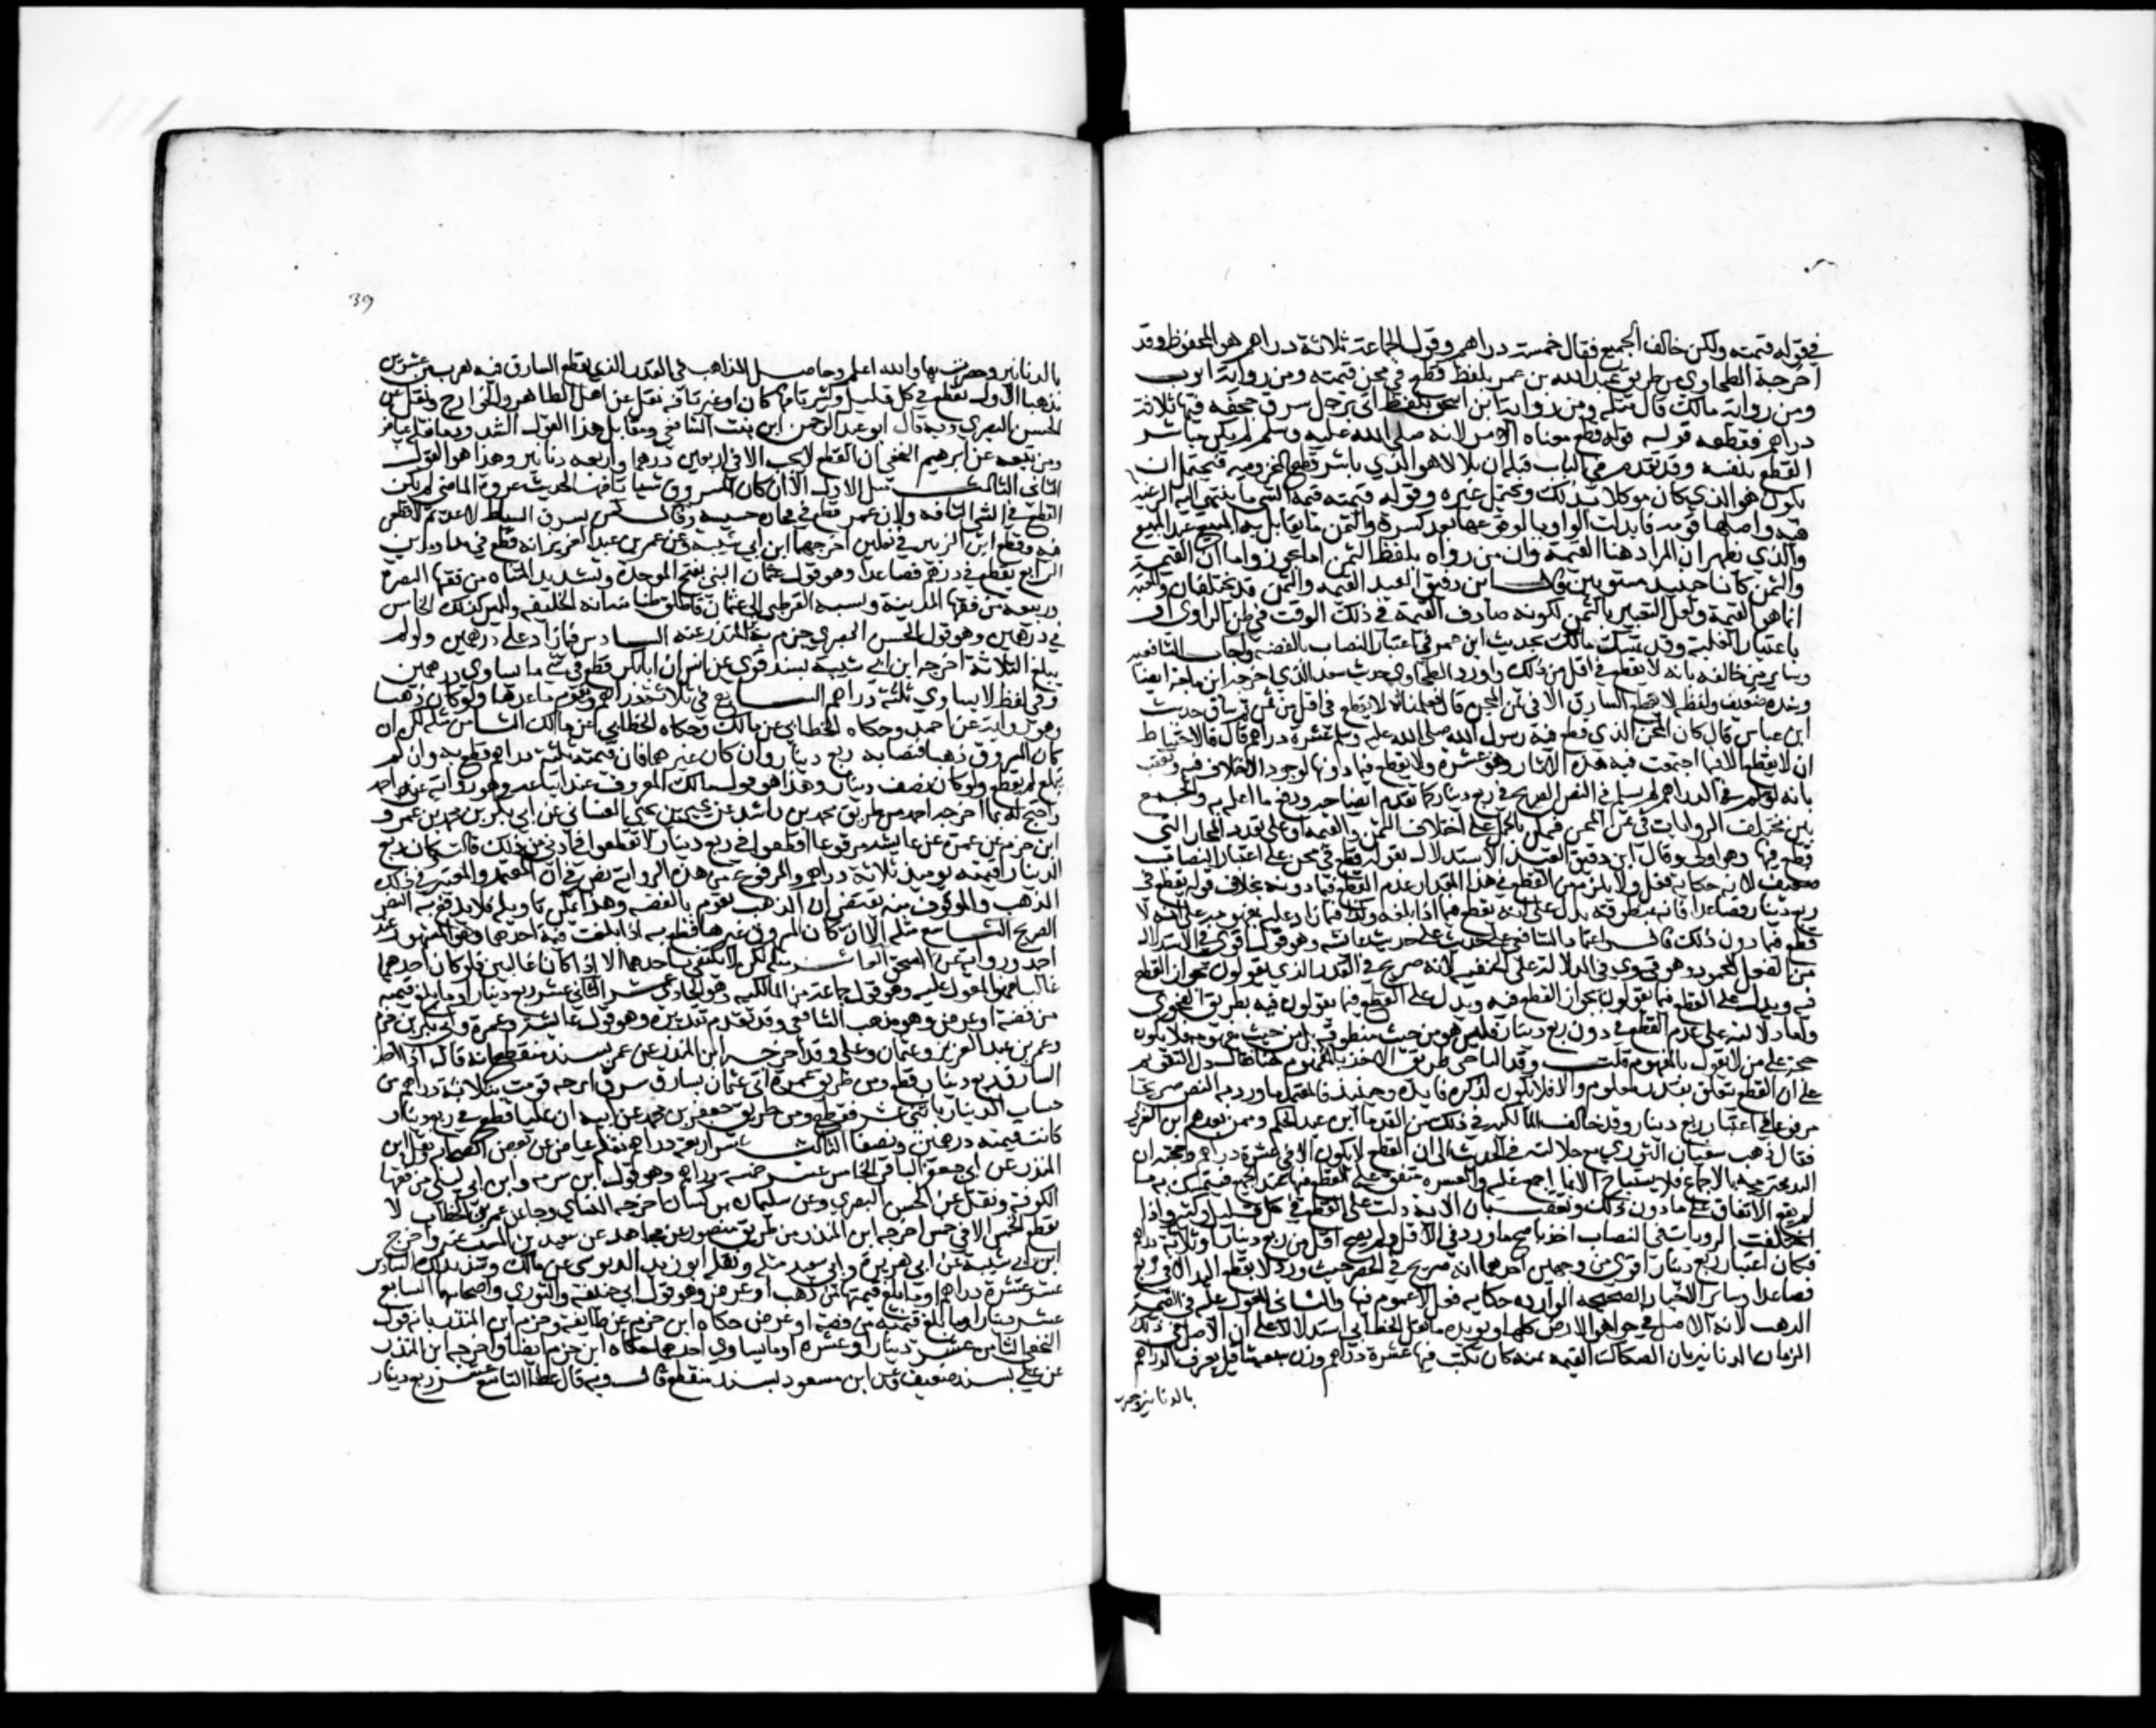 في قوله قيمته ولكن خالف الجميع فقال خمسة دراهم وقول الجماعة ثلاثة دراهم هو المحفوظ وقد
اخرجه الطحاوي من طريق عبد الله بن عمر بلفظ قطع في مجن قيمته ومن رواية ايوب
ومن رواية مالك قال مثله ومن رواية ابن اسحق بلفظ اتي برجل سرق حجفة قيمتها ثلاثة
دراهم فقطعه قوله قوله قطع معناه امر لانه صلى الله عليه وسلم لم يكن يباشر
القطع بنفسه وقد تقدم في الباب قبله ان بلالا هو الذي باشر قطع المخزومية فيحتمل ان
يكون هو الذي كان موكلا بذلك ويحتمل غيره وقوله قيمته قيمة الشي ما ينتهي اليه الرغبة
فيه واصلها قومة فابدلت الواو يا لوقوعها بعد كسرة والثمن ما يقابل به المبيع عند البيع
والذي يظهر ان المراد هنا القيمة وان من رواه بلفظ الثمن اما تجوزا واما ان القيمة
والثمن كانا حينيذ مستويين قال ابن دقيق العيد القيمة والثمن قد يختلفان والمعتبر
انما هو القيمة ولعل التعبير بالثمن لكونه صادف القيمة في ذلك الوقت في ظن الراوي او
باعتبار الغلبة وقد تمسك مالك بحديث ابن عمر في اعتبار النصاب بالفضة واجاب الشافعية
وساير من خالفه بانه لا يقطع في اقل من ذلك واورد الطحاوي حديث سعد الذي اخرجه ابن ماجة ايضا
وسنده ضعيف ولفظ لا يقطع السارق الا في ثمن المجن قال فعلمنا انه لا يقطع في اقل من ثمن ثم ساق حديث
ابن عباس قال كان المجن الذي قطع فيه رسول الله صلى الله عليه وسلم عشرة دراهم قال فالاحتياط
ان لا يقطع الا فيما اجتمعت فيه هذه الاثار وهو عشرة ولا يقطع فيما دونها لوجود الاختلاف فيه وتعقب
بانه لو سلم في الدراهم لم يسلم في النص الصريح في ربع دينار كما تقدم ايضاحه ودفع ما اعله به والجمع
بين مختلف الروايات في ثمن المجن ممكن بالحمل على اختلاف الثمن والقيمة او على تعدد المجان التي
قطع فيها وهو اولى وقال ابن دقيق العيد الاستدلال بقوله قطع في مجن على اعتبار النصاب
ضعيف لانه حكاية فعل ولا يلزم من القطع في هذا المقدار عدم القطع فيما دونه بخلاف قوله يقطع في
ربع دينار فصاعدا فانه بمنطوقه يدل على انه يقطع فيما اذا بلغه وكذا فيما زاد عليه وبمفهومه على انه لا
قطع فيما دون ذلك قال واعتماد الشافعي على حديث عايشه وهو قول اقوى في الاستدلال
من الفعل المجرد وهو قوي في الدلالة على الحنفية لانه صريح في القدر الذي يقولون بجواز القطع
فيه ويدل على القطع فيما يقولون بجواز القطع فيه ويدل على القطع فيما يقولون فيه بطريق الفحوى
واما دلالته على عدم القطع في دون ربع دينار فليس هو من حيث منطوقه بل من حيث مفهومه فلا يكون
حجة على من لا يقول بالمفهوم قلت وقد الباجي طريق الاخذ بالمفهوم هنا فقال دل التقويم
على ان القطع يتعلق بقدر معلوم والا فلا يكون لذكره فايدة وحينيذ فالمعتمد ما ورد به النص صريحا
مرفوعا في اعتبار ربع دينار وقد خالف المالكية في ذلك من القدما ابن عبد الحكم وممن بعدهم ابن العربي
فقال ذهب سفيان الثوري مع جلالته في الحديث الى ان القطع لا يكون الا في عشرة دراهم وحجته ان
اليد محترمة بالاجماع فلا يستباح الا بما اجمع عليه والعشرة متفق على القطع فيها عند الجميع فيتمسك به ما
لم يقع الاتفاق على ما دون ذلك وتعقب بان الاية دلت على القطع في كل قليل وكثير واذا
اختلفت الروايات في النصاب اخذ باصح ما ورد في الاقل ولم يصح اقل من ربع دينار او ثلاثة دراهم
فكان اعتبار ربع دينار اقوى من وجهين احدهما انه صريح في الحصر حيث ورد لا يقطع اليد الا في ربع
فصاعدا وساير الاخبار الصحيحة الواردة حكاية فعل لا عموم فيها والثاني المعول عليه في القيمة
الذهب لانه الاصل في جواهر الارض كلها ويويده ما نقل الخطابي استدلالا على ان الاصل في ذلك
الزمان الدنانير بان الصكاك القديمة كان يكتب فيها عشرة دراهم وزن سبعة مثاقيل يعرف الدراهم
بالدنانير وحصر
39
بالدنانير وحصرت بها والله اعلم وحاصل المذاهب في القدر الذي يقطع السارق فيه يقرب من عشرين
مذهبا الاول يقطع في كل قليل وكثير تافها كان او غير تافه نقل عن اهل الظاهر والخوارج ونقل عن
الحسن البصري وبه قال ابو عبد الرحمن ابن بنت الشافعي ومقابل هذا القول الشذوذ ما نقله عياض
ومن تبعه عن ابرهيم النخعي ان القطع لا يجب الا في اربعين درهما واربعة دنانير وهذا هو القول
الثاني الثالث مثل الاول الا ان كان المسروق شيا تافها لحديث عروة الماضي لم يكن
القطع في الشي التافه ولان عثمن قطع في فخارة خسيسة وقال لمن يسرق السياط لان عدتم لاقطعن
فيه وقطع ابن الزبير في نعلين اخرجهما ابن ابي شيبة وعن عمر بن عبد العزيز انه قطع في مد او مدين
الرابع يقطع في درهم فصاعدا وهو قول عثمان البتي بفتح الموحدة وتشديد المثناة من فقها البصرة
وربيعة من فقها المدينة ونسبه القرطبي الى عثمان فاطلق ظنا منه انه الخليفة وليس كذلك الخامس
في درهمين وهو قول الحسن البصري جزم به ابن المنذر عنه السادس فيما زاد على درهمين ولو لم
يبلغ الثلاثة اخرجه ابن ابي شيبة بسند قوي عن انس ان ابا بكر قطع في شي ما يساوي درهمين
وفي لفظ لا يساوي ثلثة دراهم السابع في ثلاثة دراهم ويقوم ما عداها ولو كان ذهبا
وهو رواية عن احمد وحكاه الخطابي عن مالك وحكاه الخطابي عن مالك الثامن مثله لكن ان
كان المسروق ذهبا فنصابه ربع دينار وان كان غيرهما فان قيمته ثلثة دراهم قطع به وان لم
تبلغ لم يقطع ولو كان نصف دينار وهذا هو قول مالك المعروف عند اتباعه وهو رواية عن احمد
واحتج له بما اخرجه احمد من طريق محمد بن راشد عن يحيى بن يحيى الغساني عن ابي بكر بن محمد بن عمرو
ابن حزم عن عمرة عن عايشة مرفوعا اقطعوا في ربع دينار لا تقطعوا في ادنى من ذلك قالت وكان ربع
الدينار قيمته يوميذ ثلاثة دراهم والمرفوع من هذه الرواية نص في ان المعتمد والمعتبر في ذلك
الذهب والموقوف منه يقتضي ان الذهب يقوم بالفضة وهذا يمكن تاويله فلا يدفع به النص
الصريح التاسع مثله الا ان كان المسروق غيرهما قطع به اذا بلغت قيمة احدهما وهو المشهور عند
احمد ورواية عن اسحق العاشر مثله لكن لا يكتفى باحدهما الا اذا كانا غالبين فلو كان احدهما
غالبا فهو المعول عليه وهو قول جماعة من المالكية وهو الحادي عشر الثاني عشر ربع دينار او ما يبلغ قيمته
من فضة او عرض وهو مذهب الشافعي وقد تقدم تقريره وهو قول عايشة وعمرة وابي بكر بن حزم
وعمر بن عبد العزيز وعثمان وعلي وقد اخرجه ابن المنذر عن عمر بسند منقطع انه قال اذا اخذ
السارق ربع دينار قطع ومن طريق عمرة اتي عثمان بسارق سرق اترجة قومت بثلاثة دراهم من
حساب الدينار باثني عشر فقطع ومن طريق جعفر بن محمد عن ابيه ان عليا قطع في ربع دينار
كانت قيمته درهمين ونصفا الثالث عشر اربعة دراهم نقله عياض عن بعض الصحابة ونقل ابن
المنذر عن ابي جعفر الباقر الخامس عشر خمسة دراهم وهو قول ابن شبرمة وابن ابي ليلى من فقها
الكوفة ونقل عن الحسن البصري وعن سليمان بن يسار اخرجه النساي وجا عن عمر بن الخطاب لا
يقطع الخمس الا في خمس اخرجه ابن المنذر من طريق منصور عن مجاهد عن سعيد بن المسيب عنه واخرج
ابن ابي شيبة عن ابي هريرة وابي سعيد مثله ونقله ابو زيد الدبوسي عن مالك وشذ بذلك السادس
عشر عشرة دراهم او ما بلغ قيمتها من ذهب او عرض وهو قول ابي حنيفة والثوري واصحابهما السابع
عشر دينار او ما بلغ قيمته من فضة او عرض حكاه ابن حزم عن طايفة وجزم ابن المنذر بانه قول
النخعي الثامن عشر دينار او عشرة او ما يساوي احدهما حكاه ابن حزم ايضا واخرجه ابن المنذر
عن علي بسند ضعيف وعن ابن مسعود بسند منقطع قال وبه قال عطا التاسع عشر ربع دينار